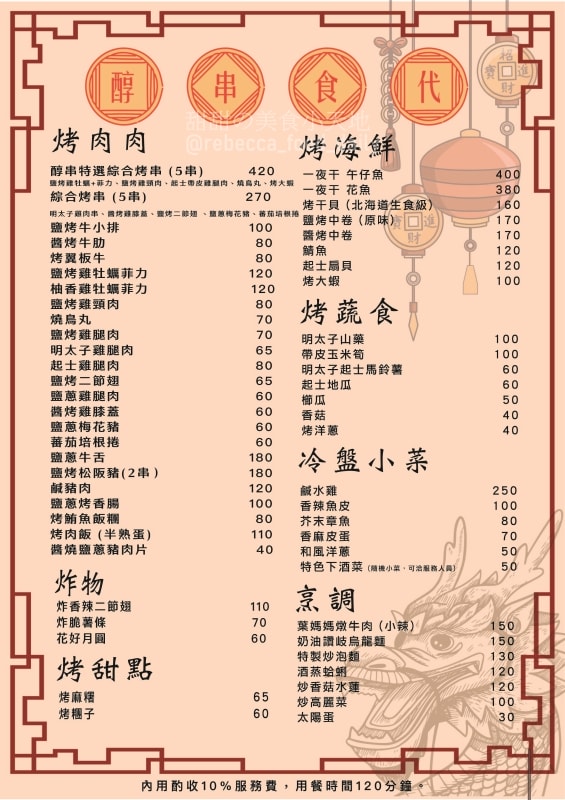 醇串食代
甜甜の美食小天地
@rebecca_f
烤肉肉
醇串特選綜合烤串 (5串) 420
鹽烤雞牡蠣+菲力、鹽烤雞頸肉、起士帶皮雞腿肉、燒鳥丸、烤大蝦
綜合烤串 (5串) 270
明太子雞肉串、醬烤雞膝蓋、鹽烤二節翅、鹽蔥梅花豬、蕃茄培根捲
鹽烤牛小排 100
醬烤牛肋 80
烤翼板牛 80
鹽烤雞牡蠣菲力 120
柚香雞牡蠣菲力 120
鹽烤雞頸肉 80
燒鳥丸 70
鹽烤雞腿肉 70
明太子雞腿肉 65
起士雞腿肉 80
鹽烤二節翅 65
鹽蔥雞腿肉 60
醬烤雞膝蓋 60
鹽蔥梅花豬 60
蕃茄培根捲 60
鹽蔥牛舌 180
鹽烤松阪豬(2串) 180
鹹豬肉 120
鹽蔥烤香腸 100
烤鮪魚飯糰 80
烤肉飯 (半熟蛋) 110
醬燒鹽蔥豬肉片 40
炸物
炸香辣二節翅 110
炸脆薯條 70
花好月圓 60
烤甜點
烤麻糬 65
烤糰子 60
烤海鮮
一夜干 午仔魚 400
一夜干 花魚 380
烤干貝 (北海道生食級) 160
鹽烤中卷 (原味) 170
醬烤中卷 170
鯖魚 120
起士扇貝 120
烤大蝦 100
烤蔬食
明太子山藥 100
帶皮玉米筍 100
明太子起士馬鈴薯 60
起士地瓜 60
櫛瓜 50
香菇 40
烤洋蔥 40
冷盤小菜
鹹水雞 250
香辣魚皮 100
芥末章魚 80
香麻皮蛋 70
和風洋蔥 50
特色下酒菜 (隨機小菜、可洽服務人員) 50
烹調
葉媽媽燉牛肉 (小辣) 150
奶油讚岐烏龍麵 150
特製炒泡麵 130
酒蒸蛤蜊 120
炒香菇水蓮 120
炒高麗菜 100
太陽蛋 30
招
寶進
財
內用酌收10%服務費，用餐時間120分鐘。